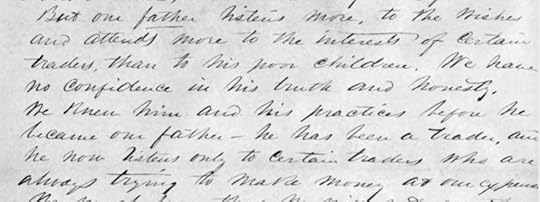 But our father listens more, to the wishes
and attends more to the interests of certain
traders, than to his poor children. We have
no confidence in his truth and honesty.
We knew him and his practices before he
became our father – he has been a trader, and
he now listens only to certain traders who are
always trying to make money at our expense